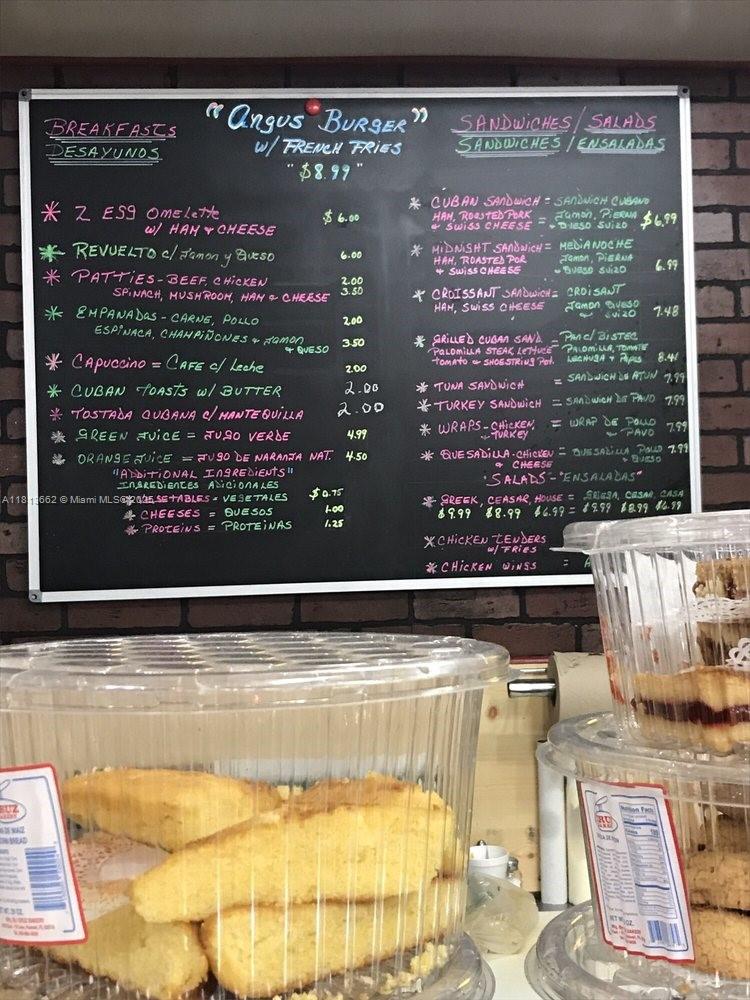 BREAKFASTS
DESAYUNOS
"Angus Burger"
w/ FRENCH FRIES
"$8.99"
SANDWICHES / SALADS
SANDWICHES / ENSALADAS
* 2 Egg Omelette $6.00
w/ HAM & CHEESE
* REVUELTO c/ Jamon y Queso 6.00
* PATTIES - BEEF, CHICKEN 2.00
SPINACH, MUSHROOM, HAM & CHEESE 3.50
* EMPANADAS - CARNE, POLLO 2.00
ESPINACA, CHAMPIÑONES & Jamon
& QUESO 3.50
* CAPUCCINO = CAFE c/ Leche 2.00
* CUBAN TOASTS w/ BUTTER 2.00
* TOSTADA CUBANA c/ MANTEQUILLA 2.00
* GREEN JUICE = JUGO VERDE 4.99
* ORANGE JUICE = JUGO DE NARANJA NAT. 4.50
"ADDITIONAL INGREDIENTS"
INGREDIENTES ADICIONALES
VEGETABLES - VEGETALES $0.75
* CHEESES = QUESOS 1.00
* PROTEINS = PROTEINAS 1.25
* CUBAN SANDWICH = SANDWICH CUBANO
HAM, ROASTED PORK = Jamon, PIERNA
& SWISS CHEESE & QUESO SUIZO $6.99
* MIDNIGHT SANDWICH = MEDIANOCHE
HAM, ROASTED POR Jamon, PIERNA
& SWISS CHEESE & QUESO SUIZO 6.99
* CROISSANT SANDWICH = CROISANT
HAM, SWISS CHEESE Jamon QUESO
& SUIZO 7.48
* GRILLED CUBAN SAND. = PAN C/ BISTEC
PALOMILLA STEAK, LETTUCE PALOMILLA, TOMATE
TOMATO & SHOESTRING POT. LECHUGA & PAPAS 8.41
* TUNA SANDWICH = SANDWICH DE ATUN 7.99
* TURKEY SANDWICH = SANDWICH DE PAVO 7.99
* WRAPS - CHICKEN, = WRAP DE POLLO
TURKEY & PAVO 7.99
* QUESADILLA - CHICKEN = QUESADILLA POLLO 7.99
& CHEESE QUESO
"SALADS - "ENSALADAS"
* GREEK, CEASAR, HOUSE = GRIEGA, CESAR, CASA
$9.99 $8.99 $6.99 = $9.99 $8.99 $6.99
* CHICKEN TENDERS
w/ FRIES
* CHICKEN WINGS =
© Miami MLS
Nutrition Facts